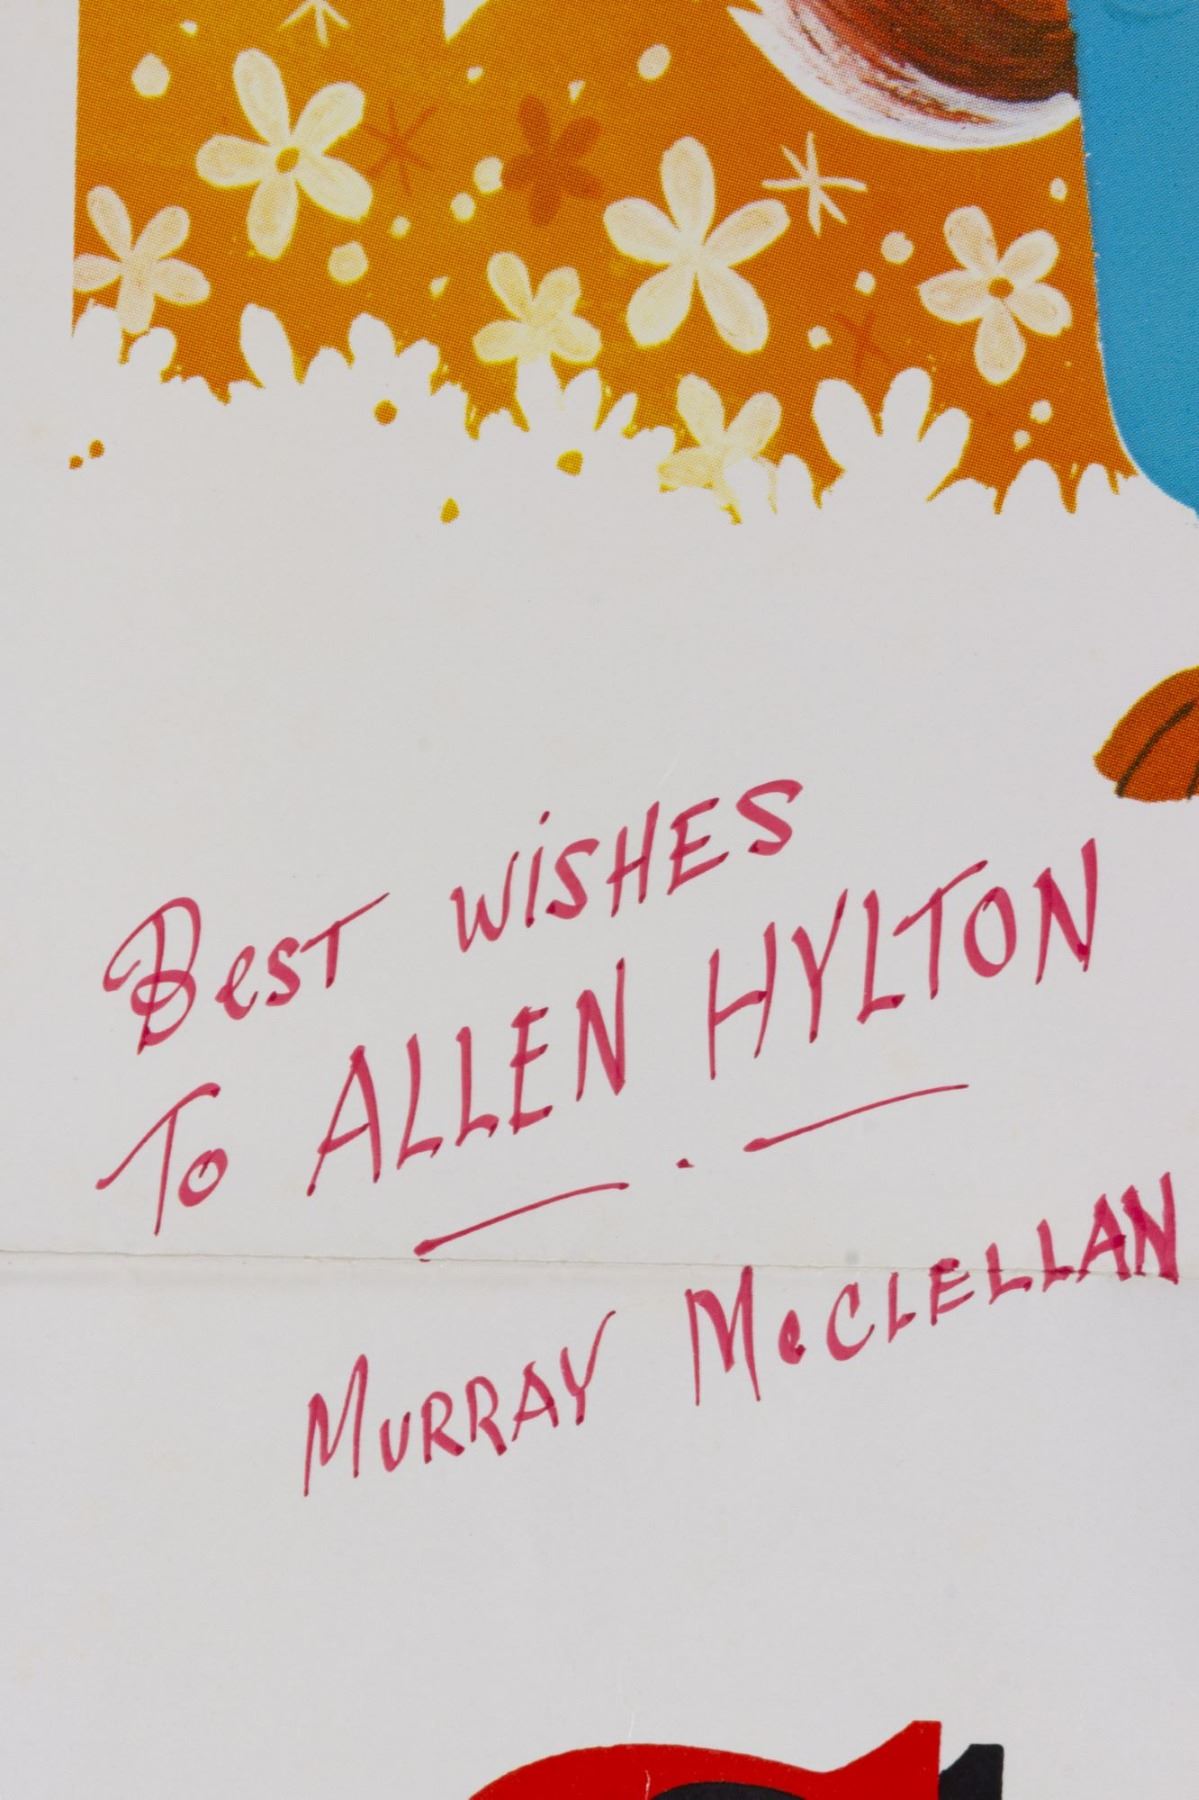 Best wiSHES
To ALLEN HYLTON
MURRAY McCLELLAN